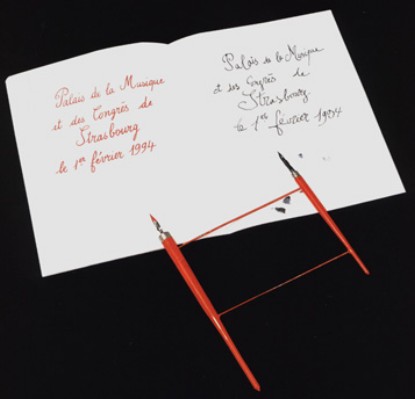 Palais de la Musique
et des Congrès de
Strasbourg
le 1er février 1994
Palais de la Musique
et des Congrès de
Strasbourg
le 1er février 1994